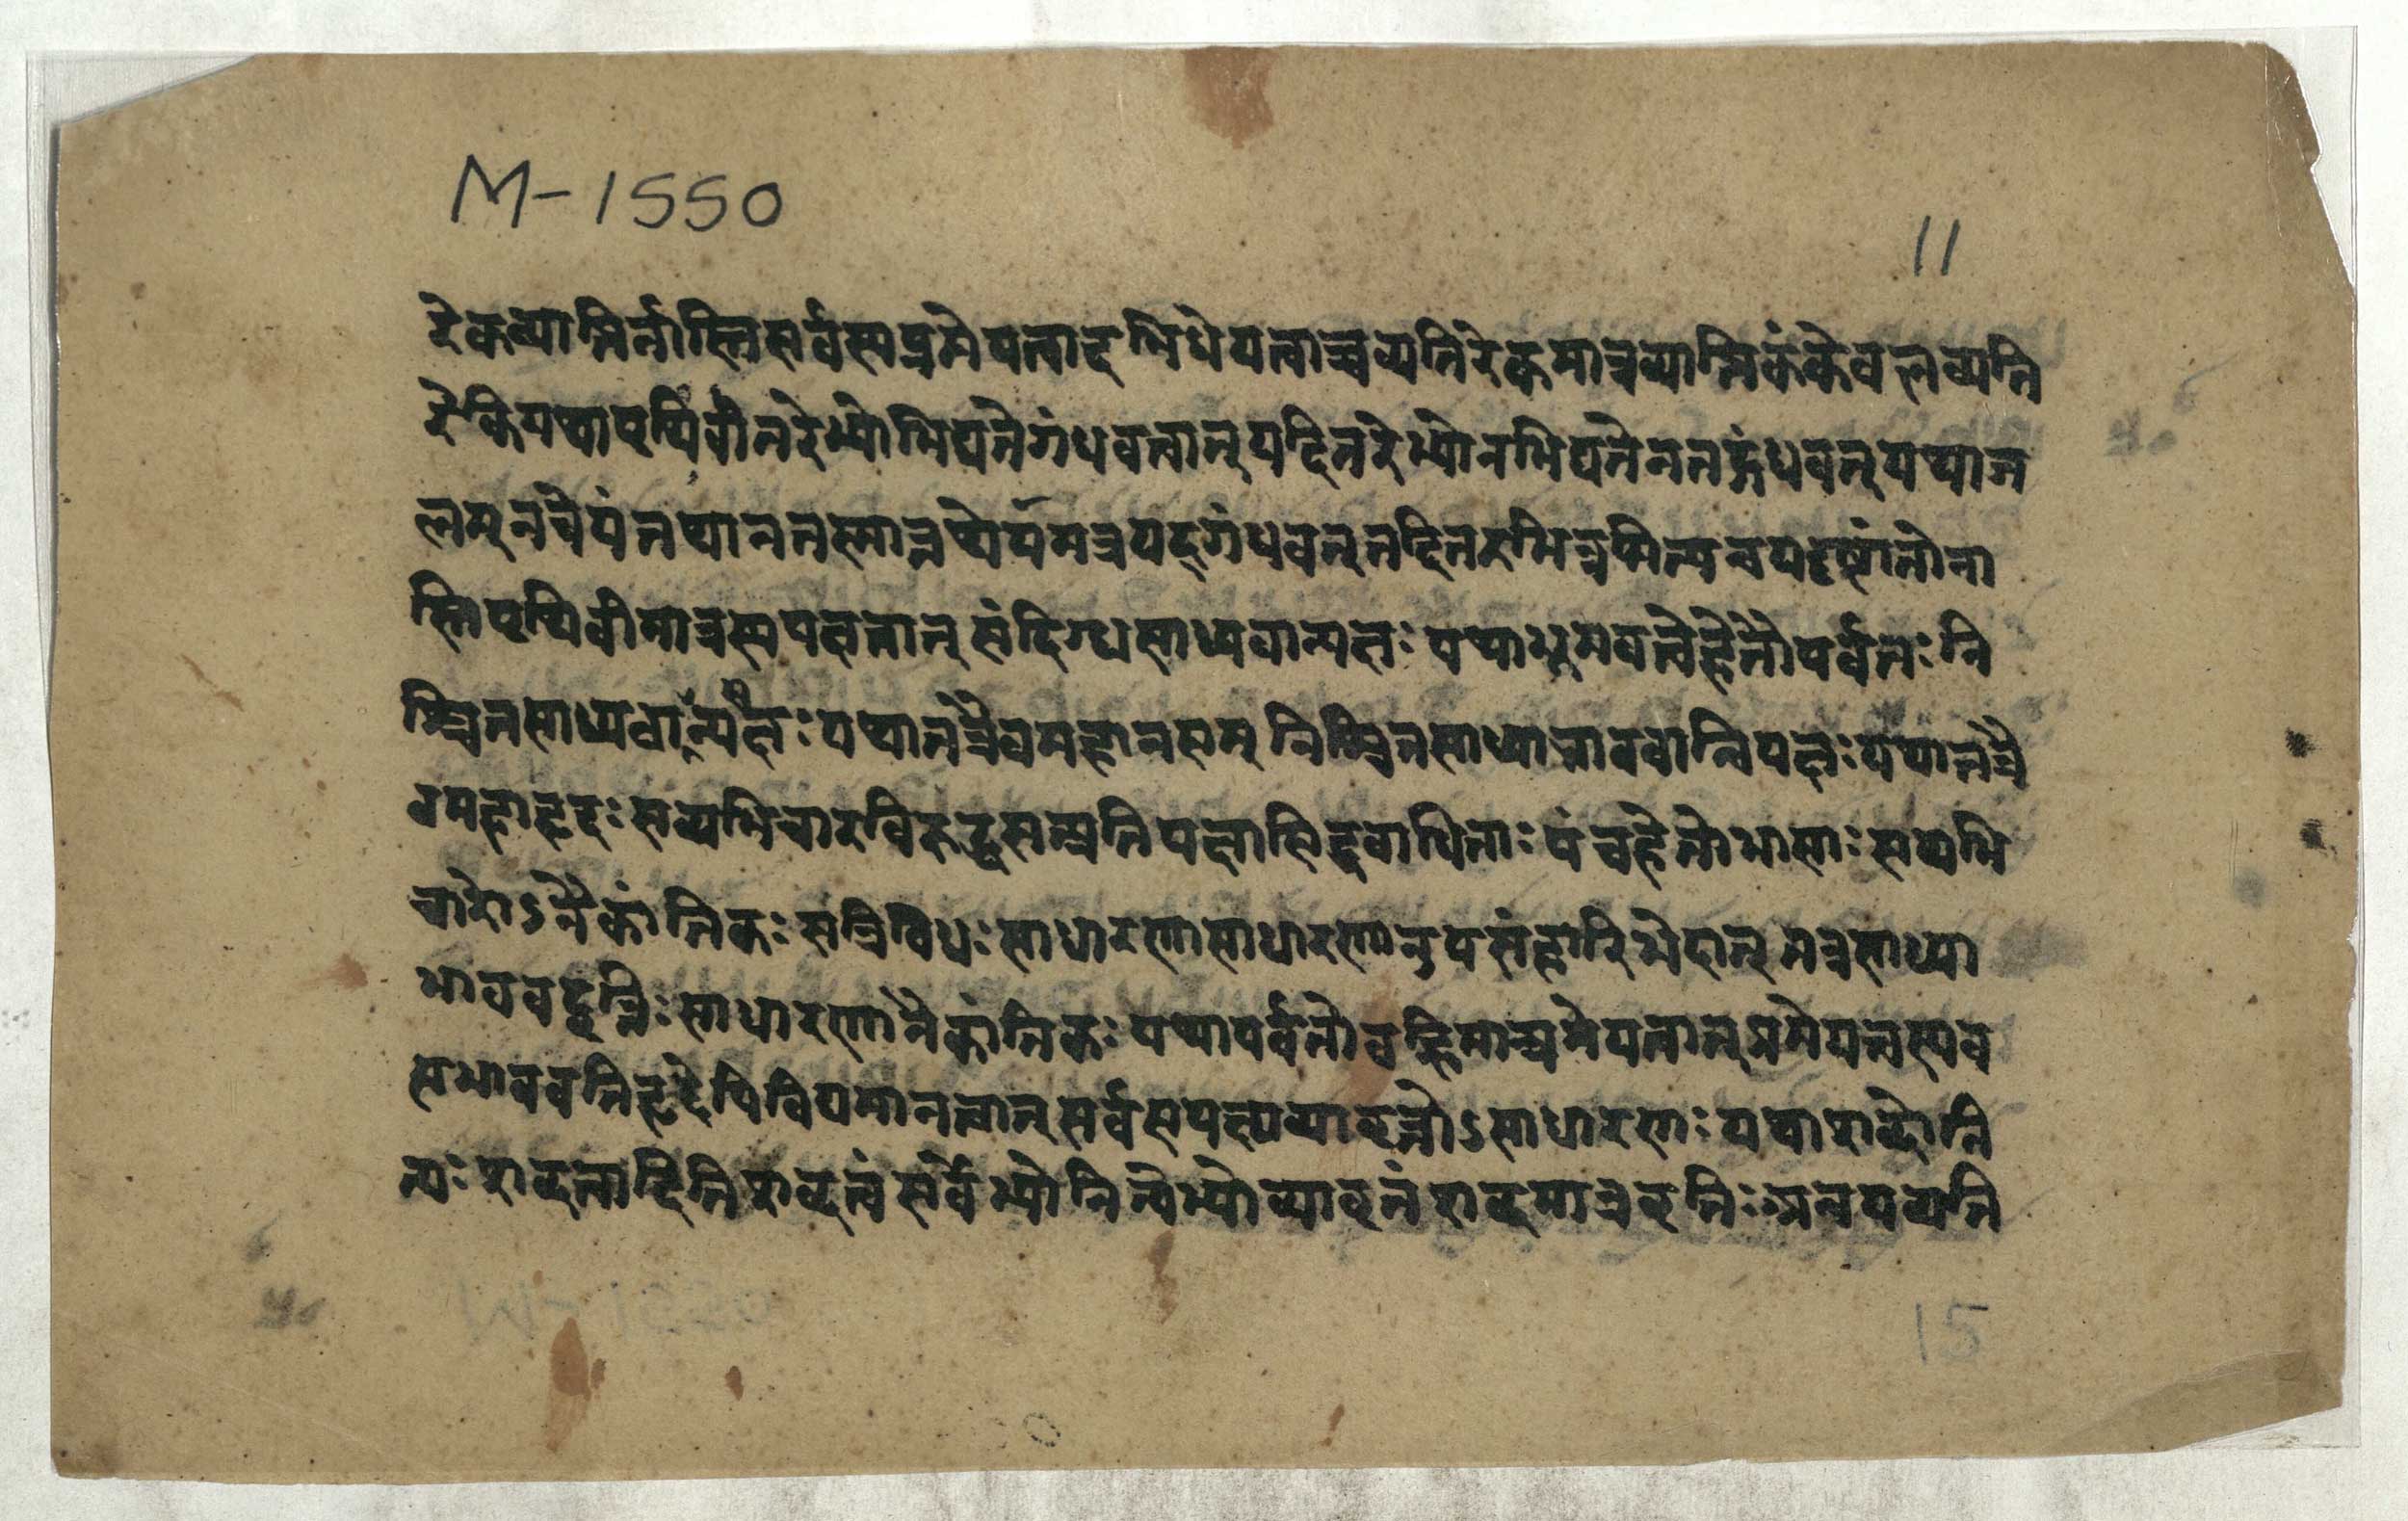 M-1550
11
रेकव्याप्तिर्नास्तिसर्वस्यप्रमेयत्वादभिधेयत्वाच्चव्यतिरेकमात्रव्याप्तिकंकेवलव्यति
रेकियथापृथिवीतरेभ्योभिद्यतेगंधवत्वात् यदितरेभ्योनभिद्यतेनतद्गंधवत् यथाज
लम् नचेयंतथातस्मान्नतथेयमत्रयद्गंधवत् तदितरभिन्नमित्यन्वयदृष्टांतोना
स्तिपृथिवीमात्रस्यपक्षत्वात् संदिग्धसाध्यवान्पक्षः यथाधूमवत्वेहेतौपर्वतः नि
श्चितसाध्यवान्सपक्षः यथातत्रैवमहानसम् निश्चितसाध्याभाववान्विपक्षः यथातत्रै
वमहाह्रदः सव्यभिचारविरुद्धसत्प्रतिपक्षासिद्धबाधिताः पंचहेत्वाभासाः सव्यभि
चारोऽनैकांतिकः सत्रिविधः साधारणासाधारणानुपसंहारिभेदात् तत्रसाध्या
भाववद्वृत्तिः साधारणोनैकांतिकः यथापर्वतोवह्निमान्प्रमेयत्वात् प्रमेयत्वस्यव
ह्न्यभाववतिह्रदेपिविद्यमानत्वात् सर्वसपक्षव्यावृत्तोऽसाधारणः यथाशब्दोनि
त्यः शब्दत्वादितिशब्दत्वंसर्वेभ्योनित्येभ्योव्यावृत्तंशब्दमात्रवृत्तिः अन्वयव्यति
15